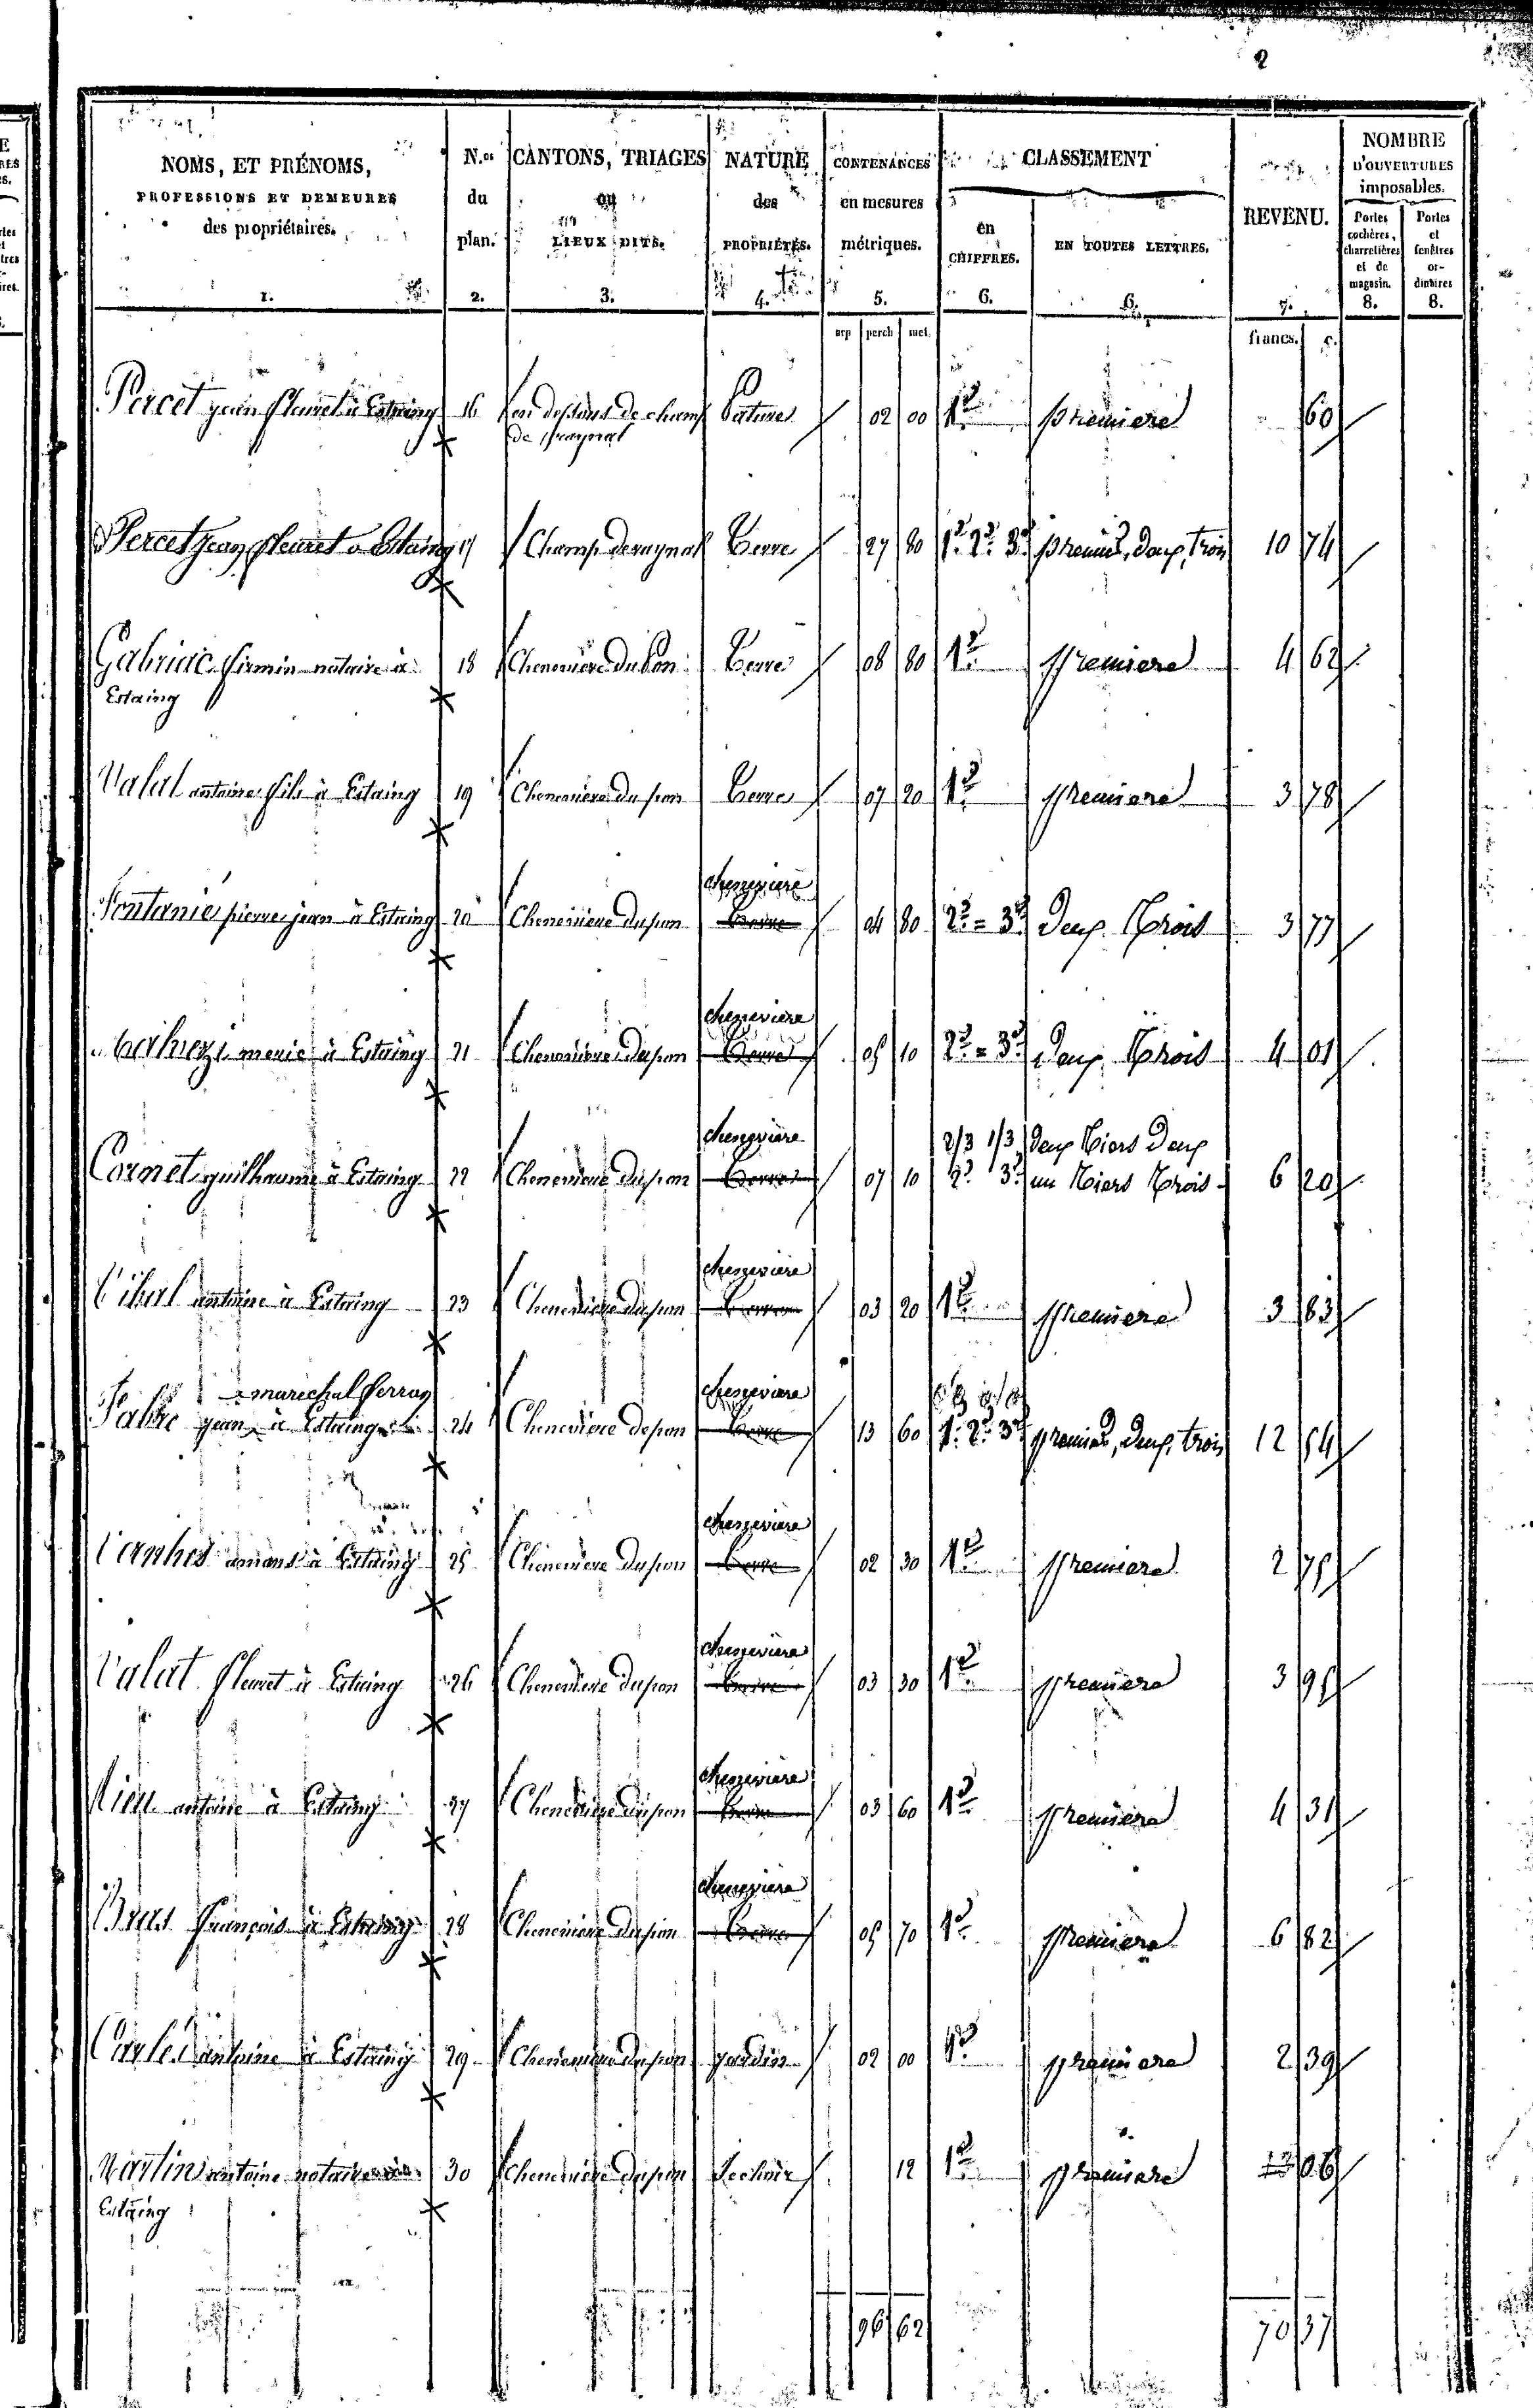 2
NOMS, ET PRÉNOMS,
PROFESSIONS ET DEMEURES
des propriétaires.
1.
N.os
du
plan.
2.
CANTONS, TRIAGES
ou
LIEUX DITS.
3.
NATURE
des
PROPRIÉTÉS.
4.
CONTENANCES
en mesures
métriques.
5.
CLASSEMENT
en
CHIFFRES.
6.
EN TOUTES LETTRES.
6.
REVENU.
7.
NOMBRE
D'OUVERTURES
imposables.
Portes
cochères,
charretières
et de
magasin.
8.
Portes
et
fenêtres
or-
dinaires
8.
arp perch met. francs. c.
Percet jean fleuret à Estaing 16 en dessous de champ Pature 02 00 1re premiere 60
de raynal
Percet jean fleuret a Estaing 17 Champ de raynal Terre 27 80 1re 2e 3e premie, deux, trois 10 74
Gabriac firmin notaire à 18 Cheneviere du pon Terre 08 80 1re premiere 4 62
Estaing
Valat antoine fils à Estaing 19 Cheneviere du pon Terre 07 20 1re premiere 3 78
cheneviere
Fontanié pierre jean à Estaing 20 Cheneviere du pon Terre 04 80 2e = 3e Deux Trois 3 77
cheneviere
à Estaing 21 Cheneviere du pon Terre 05 10 2e = 3e Deux Trois 4 01
cheneviere 2/3 1/3 Deux Tiers Deux
Cornet guilhaume à Estaing 22 Cheneviere du pon Terre 07 10 2e 3e un Tiers Trois 6 20
cheneviere
antoine à Estaing 23 Cheneviere du pon Terre 03 20 1re premiere 3 83
marechal ferran cheneviere
Fabre jean à Estaing 24 Cheneviere de pon Terre 13 60 1re 2e 3e premiere, deux, trois 12 54
cheneviere
amans à Estaing 25 Cheneviere du pon Terre 02 30 1re premiere 2 75
cheneviere
Valat fleuret à Estaing 26 Cheneviere du pon Terre 03 30 1re premiere 3 95
cheneviere
antoine à Estaing 27 Cheneviere du pon Terre 03 60 1re premiere 4 31
cheneviere
Bras françois à Estaing 28 Cheneviere du pon Terre 05 70 1re premiere 6 82
antoine à Estaing 29 Cheneviere du pon jardin 02 00 1re premiere 2 39
Martin antoine notaire à 30 Cheneviere du pon sechoir 12 1re premiere 06
Estaing
96 62 70 37